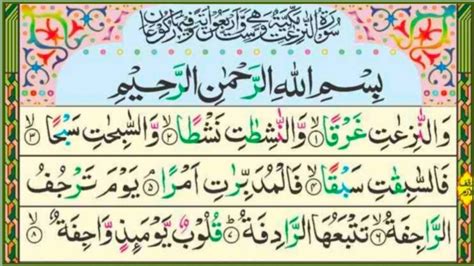 سُوْرَةُ النّٰزِعٰتِ مَكِّيَّةٌ وَّهِيَ سِتٌّ وَّاَرْبَعُوْنَ اٰيَةً وَّفِيْهَا رُكُوْعَانِ
بِسْمِ اللّٰهِ الرَّحْمٰنِ الرَّحِيْمِ
وَالنّٰزِعٰتِ غَرْقًا ۙ﴿۱﴾ وَّالنّٰشِطٰتِ نَشْطًا ۙ﴿۲﴾ وَّالسّٰبِحٰتِ سَبْحًا ۙ﴿۳﴾
فَالسّٰبِقٰتِ سَبْقًا ۙ﴿۴﴾ فَالْمُدَبِّرٰتِ اَمْرًا ۘ﴿۵﴾ يَوْمَ تَرْجُفُ
الرَّاجِفَةُ ۙ﴿۶﴾ تَتْبَعُهَا الرَّادِفَةُ ؕ﴿۷﴾ قُلُوْبٌ يَّوْمَئِذٍ وَّاجِفَةٌ ۙ﴿۸﴾